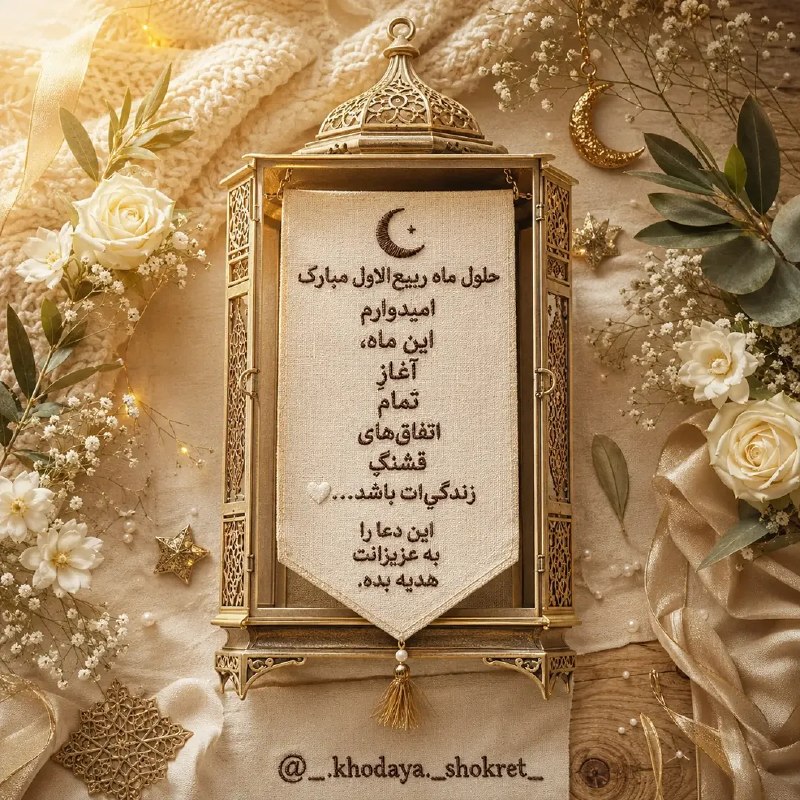 حلول ماه ربیع‌الاول مبارک
امیدوارم
این ماه،
آغازِ
تمام
اتفاق‌های
قشنگِ
زندگی‌ات باشد...🤍
این دعا را
به عزیزانت
هدیه بده.
@_.khodaya._shokret_